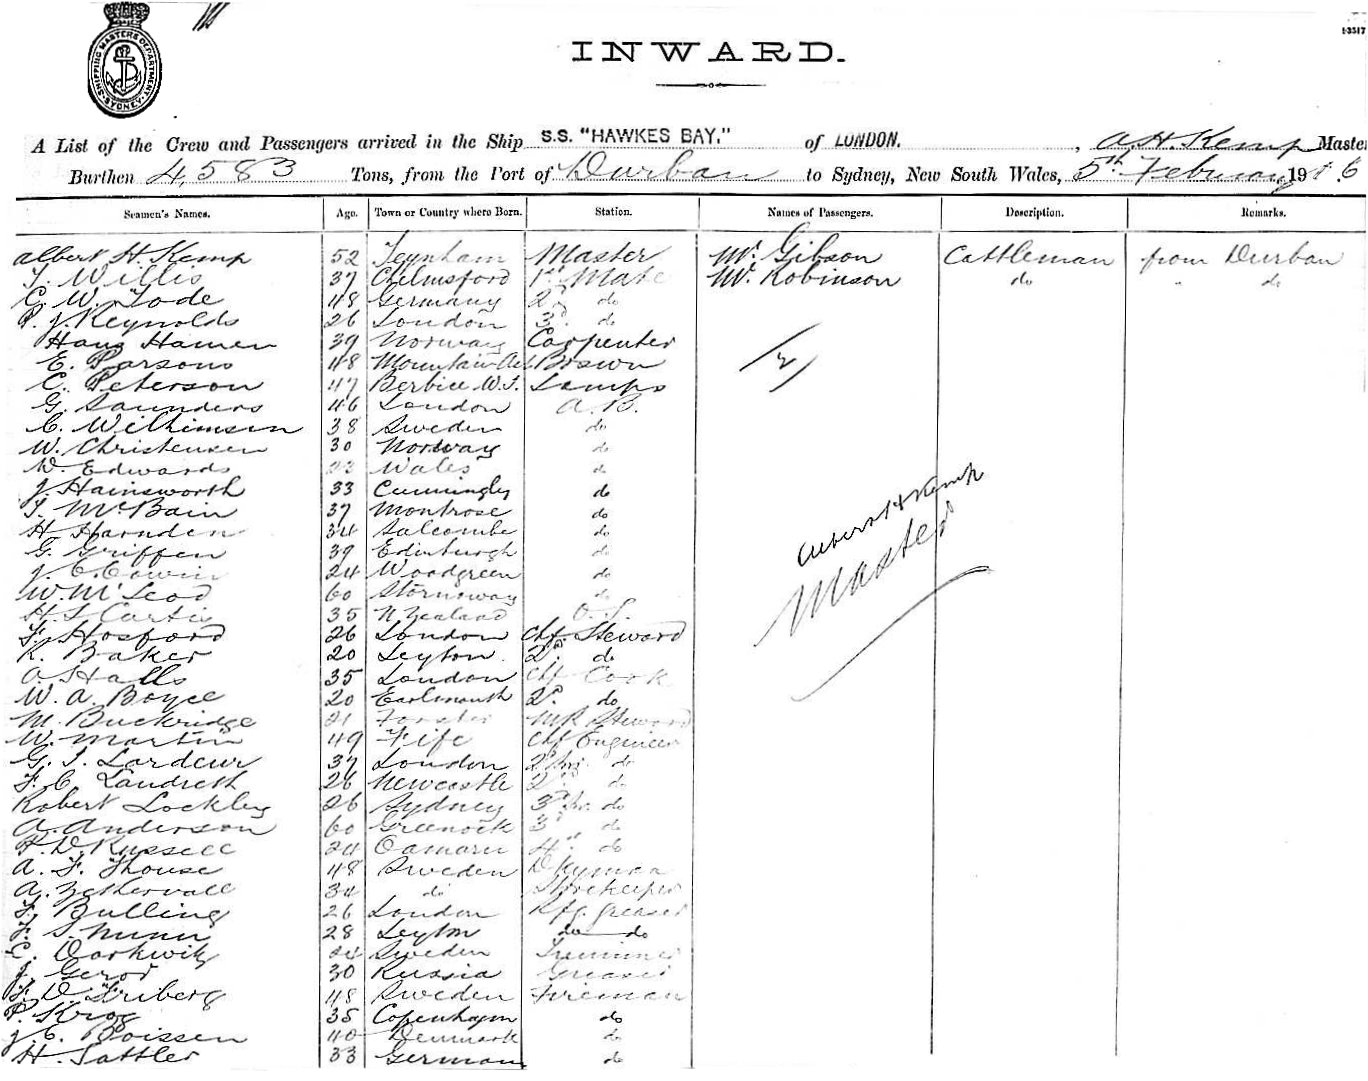 SHIPPING MASTERS DEPARTMENT SYDNEY
13517
INWARD.
A List of the Crew and Passengers arrived in the Ship S.S. "HAWKES BAY," of LONDON. , A.H. Kemp Master
Burthen 4,583 Tons, from the Port of Durban to Sydney, New South Wales, 5th February 191 6
Seamen's Names. Age. Town or Country where Born. Station. Names of Passengers. Description. Remarks.
Albert H. Kemp 52 Teynham Master Mr. Gibson Cattleman from Durban
T. Willis 37 Chelmsford 1st Mate Mr. Robinson do " do
G. W. Tode 48 Germany 2d do
P. J. Reynolds 26 London 3d. do
Hans Hansen 39 Norway Carpenter
E. Parsons 48 Mountain Ash Bosun
C. Peterson 47 Berbice W.I. Lamps
G. Saunders 46 London A.B.
C. Wilhimsen 38 Sweden do
W. Christensen 30 Norway do
W. Edwards Wales do
J. Hainsworth 33 do
T. McBain 37 Montrose do
H Harnden 34 Salcombe do
G. Griffen 39 Edinburgh do
J. C. Cowin 24 Woodgreen do
W. McLeod 60 Stornoway do
H. S. Curtis 35 N Zealand O.S.
F. Hosford 26 London Chf. Steward
R. Baker 20 Leyton 2d. do
A Halls 35 London Chf Cook
W. A. Boyce 20 2d. do
M. Buckridge 21 Steward
W. Martin 49 Fife Chf Engineer
G. T. Lardeur 37 London 2d do
F. C. Landreth 26 Newcastle 2d do
Robert Lockley 26 Sydney 3d do
A. Anderson 60 Greenock 3d do
P. D. Russell 24 Oamaru 4th do
A. F. Thouse 48 Sweden Dkyman
A. Zethervall 34 do Storekeeper
F. Bulling 26 London Rfg. Greaser
F. S. Nunn 28 Leyton do do
C. 24 Sweden Trimmer
J. Gerod 30 Russia Greaser
F. O. Friberg 48 Sweden Fireman
P. Krog 35 Copenhagen do
J. C. Boissen 40 Denmark do
H. Sattler 33 German do
2
Albert H Kemp
Master